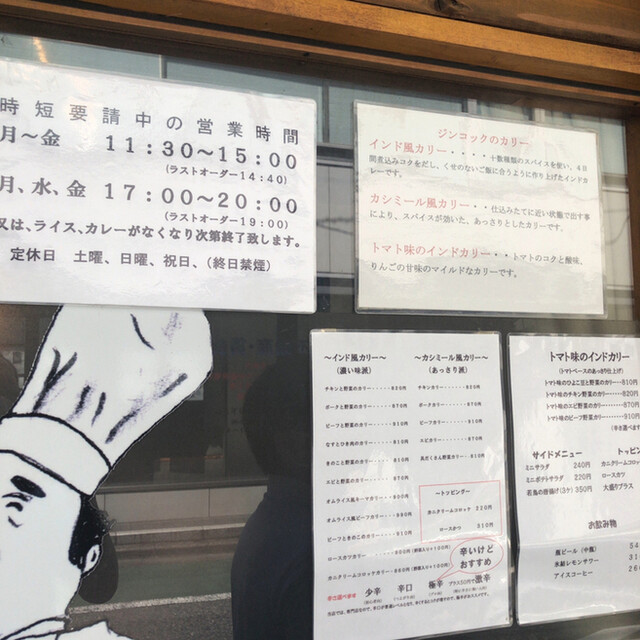 時短要請中の営業時間
月～金 11:30～15:00
(ラストオーダー14:40)
月、水、金 17:00～20:00
(ラストオーダー19:00)
又は、ライス、カレーがなくなり次第終了致します。
定休日 土曜、日曜、祝日、(終日禁煙)
ジンコックのカリー
インド風カリー・・・・十数種類のスパイスを使い、4日
間煮込みコクをだし、くせのないご飯に合うように作り上げたインドカ
レーです。
カシミール風カリー・・仕込みたてに近い状態で出す事
により、スパイスが効いた、あっさりとしたカリーです。
トマト味のインドカリー・・トマトのコクと酸味、
りんごの甘味のマイルドなカリーです。
～インド風カリー～
(濃い味派)
チキンと野菜のカリー
ポークと野菜のカリー
ビーフと野菜のカリー
なすとひき肉のカリー
きのこと野菜のカリー
エビと野菜のカリー
オムライス風キーマカリー
オムライス風ビーフカリー
ビーフときのこのカリー
ロースカツカリー
カニクリームコロッケカリー
～カシミール風カリー～
(あっさり派)
チキンカリー
ポークカリー
ビーフカリー
エビカリー
具だくさん野菜カリー
～トッピング～
カニクリームコロッケ 220円
ロースかつ 310円
辛いけど
おすすめ
辛さ選べます 少辛 辛口 極辛 プラス50円で激辛
トマト味のインドカリー
(トマトベースのあっさり仕上げ)
トマト味のひよこ豆と野菜のカリー 810円
トマト味のチキン野菜のカリー 820円
トマト味のエビと野菜のカリー 870円
トマト味のビーフ野菜のカリー 910円
サイドメニュー
ミニサラダ 240円
ミニポテトサラダ 220円
若鳥の唐揚げ(3ケ) 350円
トッピン
カニクリームコロッ
ロースカツ
大盛りプラス
お飲み物
瓶ビール(中瓶) 54
氷結レモンサワー 31
アイスコーヒー 26